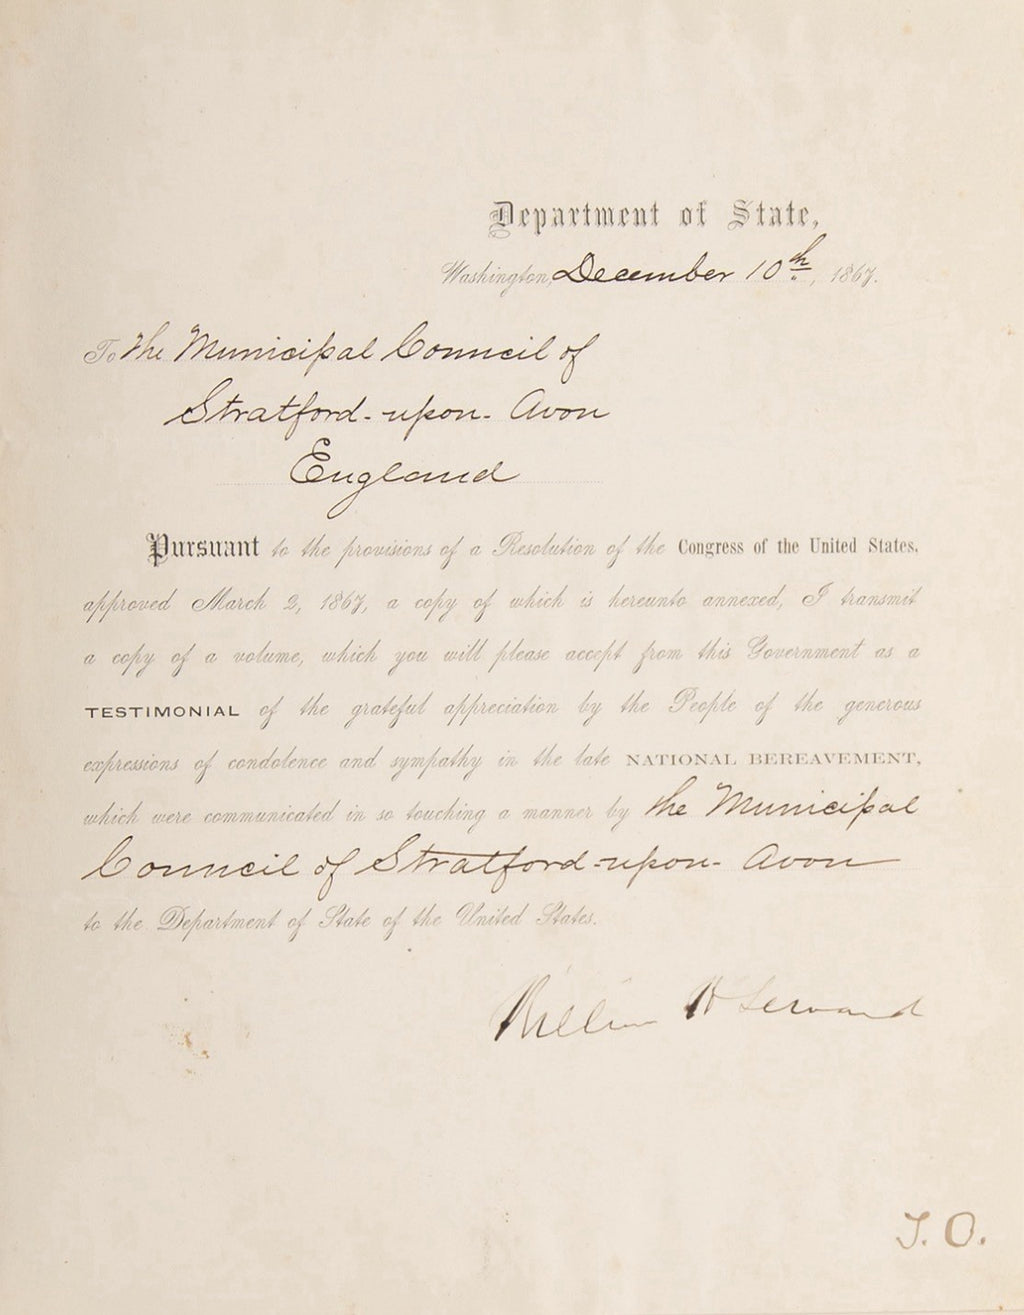 Department of State,
Washington, December 10th, 1867.
To The Municipal Council of
Stratford-upon-Avon
England
Pursuant to the provisions of a Resolution of the Congress of the United States,
approved March 2, 1867, a copy of which is hereunto annexed, I transmit
a copy of a volume, which you will please accept from this Government as a
TESTIMONIAL of the grateful appreciation by the People of the generous
expressions of condolence and sympathy in the late NATIONAL BEREAVEMENT,
which were communicated in so touching a manner by the Municipal
Council of Stratford-upon-Avon
to the Department of State of the United States.
William H Seward
J. O.